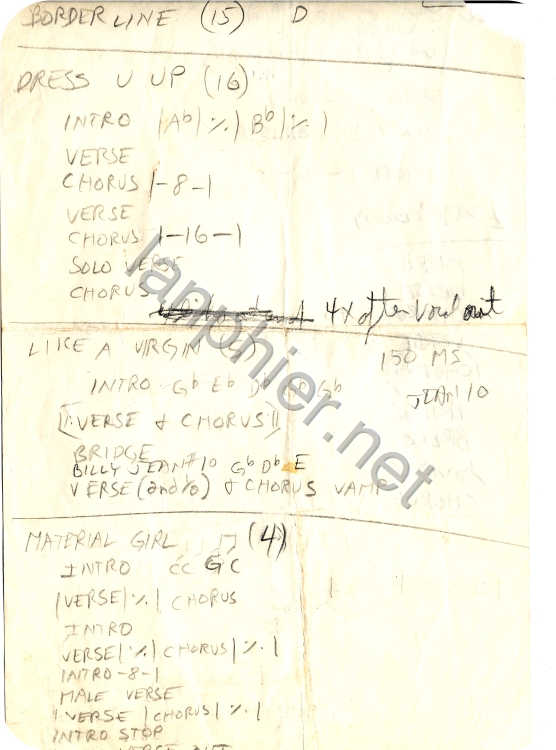 BORDERLINE (15) D
DRESS U UP (16)
INTRO |Ab| ٪ | Bb | ٪ |
VERSE
CHORUS |-8-|
VERSE
CHORUS |-16-|
SOLO VERSE
CHORUS
4x after vocal out
LIKE A VIRGIN
150 MS
INTRO Gb Eb Db Gb
JEAN 10
||: VERSE & CHORUS :||
BRIDGE
BILLY JEAN #10 Gb Db E
VERSE (2nd ½) & CHORUS VAMP
MATERIAL GIRL (4)
INTRO CC G C
|VERSE| ٪ | CHORUS
INTRO
VERSE| ٪ | CHORUS | ٪ |
INTRO -8-|
MALE VERSE
| VERSE | CHORUS | ٪ |
INTRO STOP
VERSE
lanphier.net